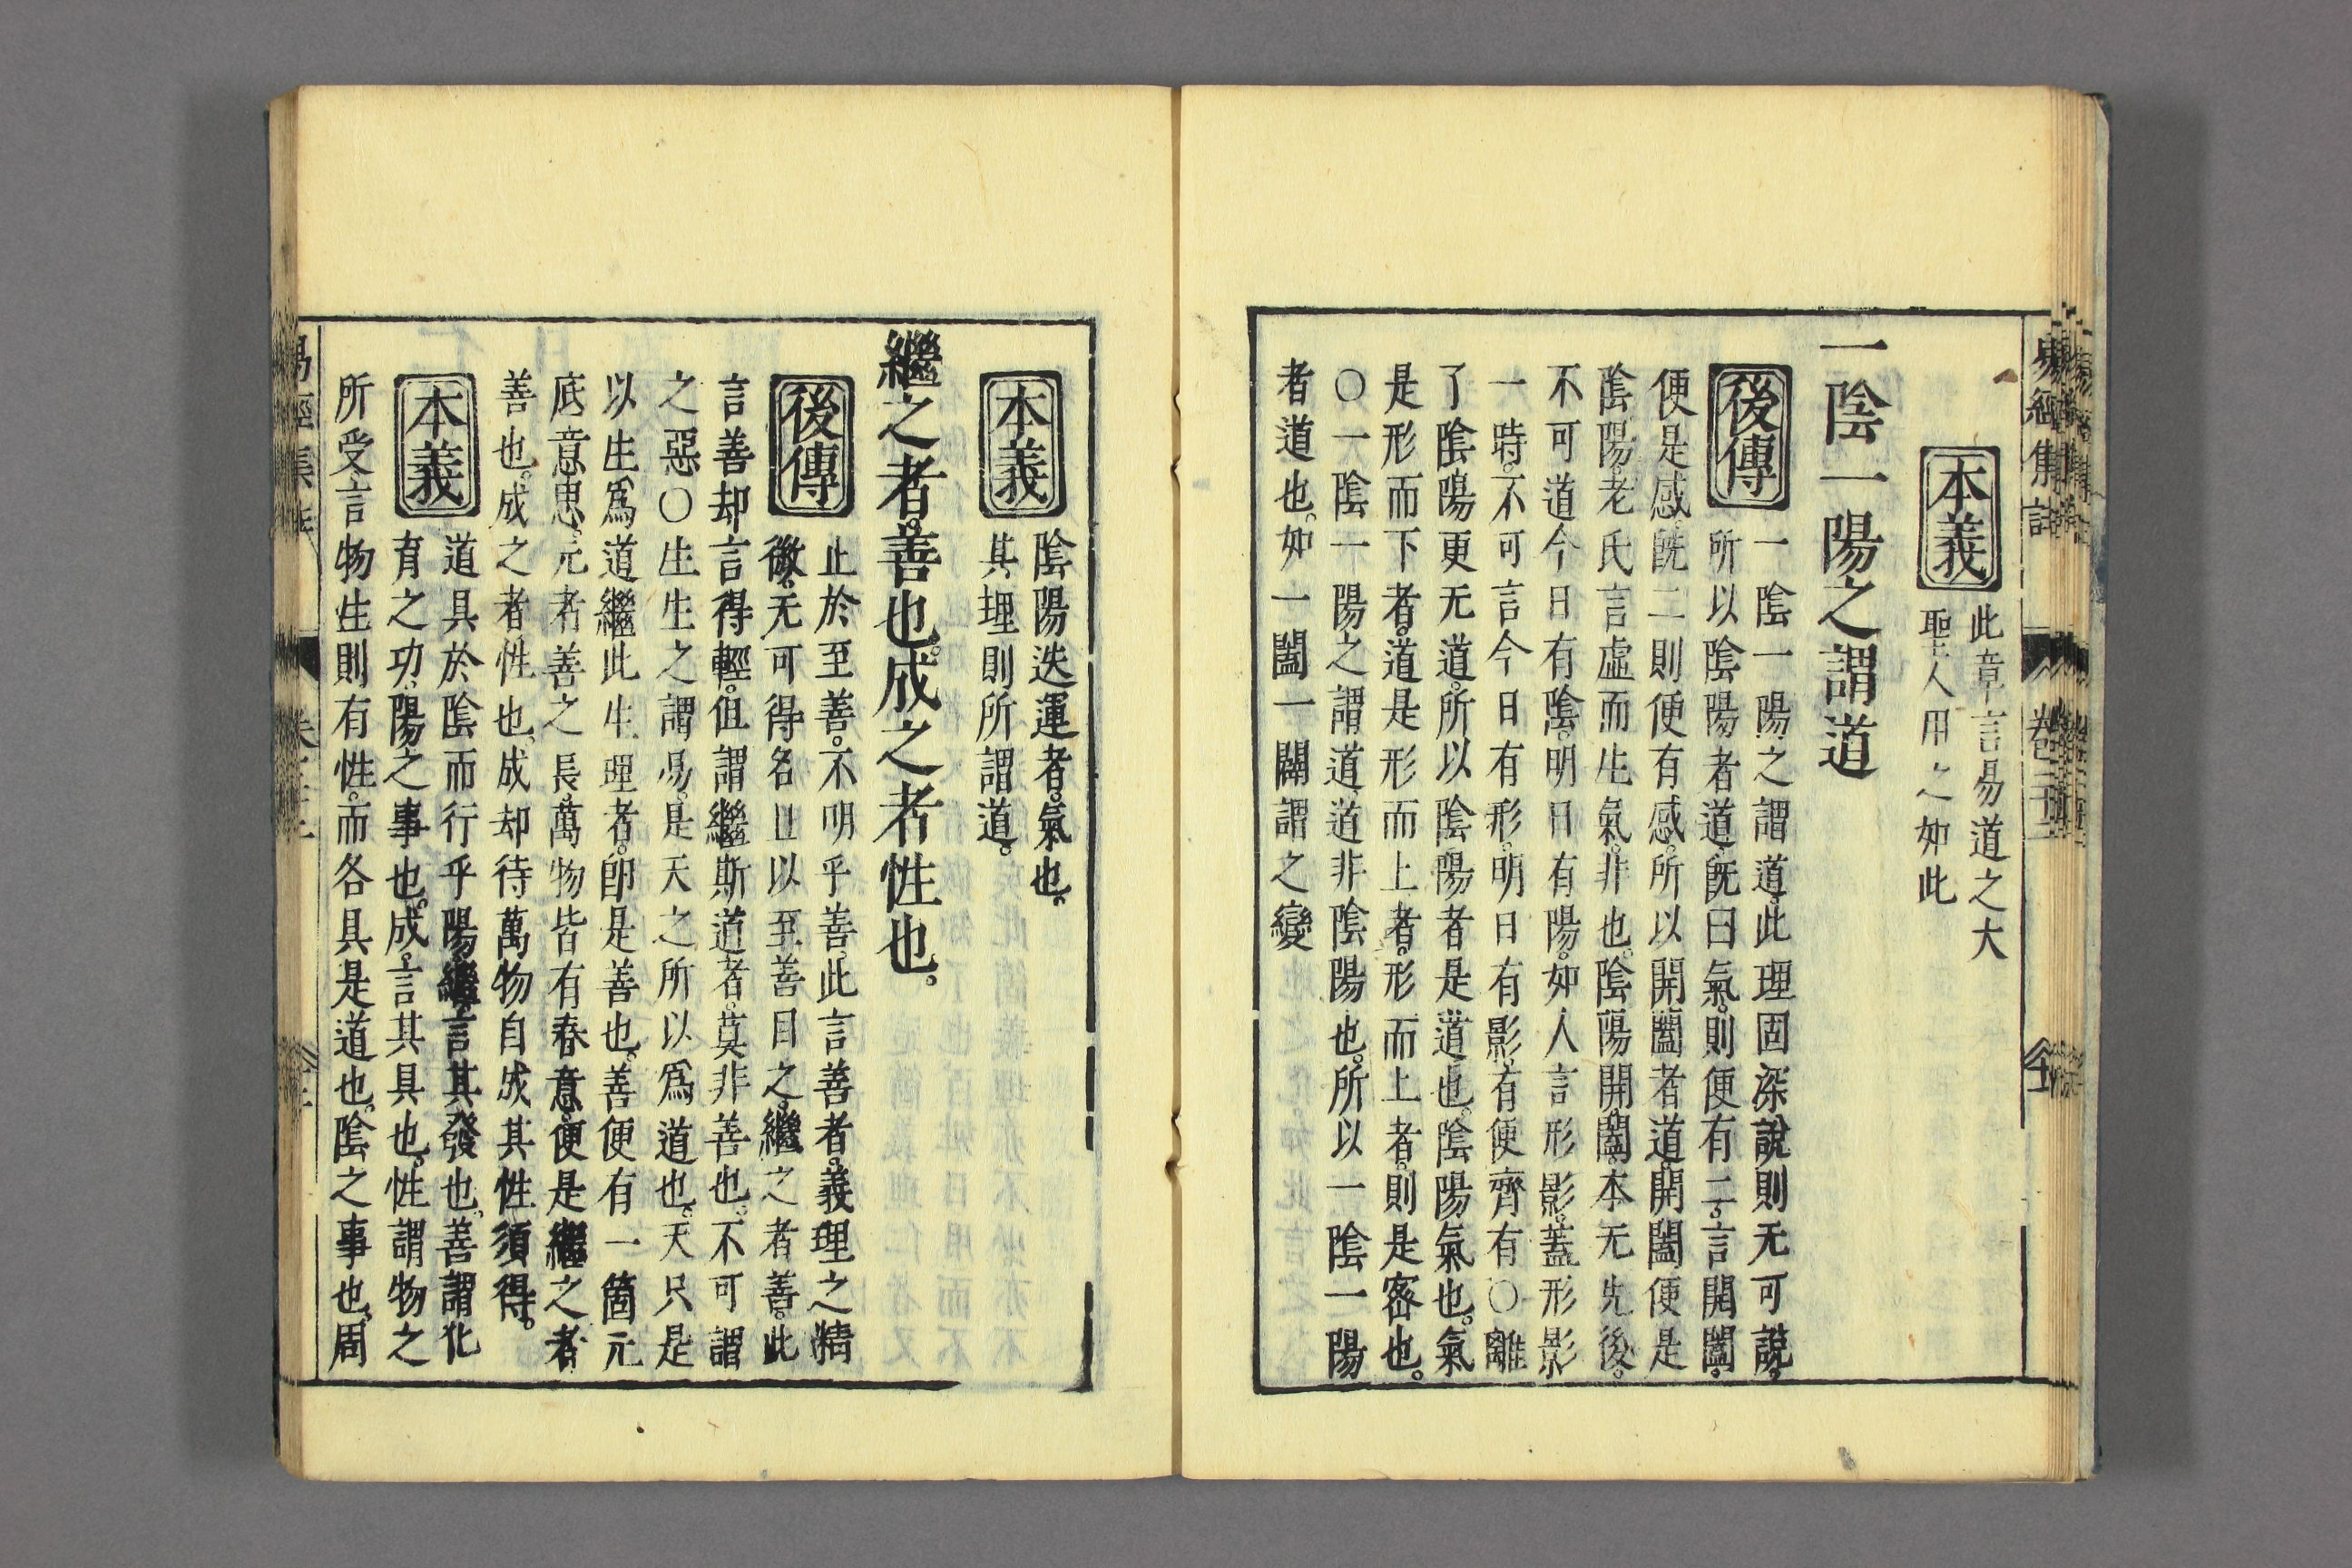 易經集註
卷二十
本義
此章言易道之大
聖人用之如此
一陰一陽之謂道
後傳
一陰一陽之謂道。此理固深。說則无可說。
所以陰陽者道。旣曰氣。則便有二。言開闔。
便是感。旣二則便有感。所以開闔者道。開闔便是
陰陽。老氏言虛而生氣。非也。陰陽開闔。本无先後。
不可道今日有陰。明日有陽。如人言形影。蓋形影
一時。不可言今日有形。明日有影。有便齊有○離
了陰陽更无道。所以陰陽者是道也。陰陽氣也。氣
是形而下者。道是形而上者。形而上者。則是密也。
○一陰一陽之謂道。道非陰陽也。所以一陰一陽
者道也。如一闔一闢謂之變
本義
陰陽迭運者。氣也。
其理則所謂道。
繼之者。善也。成之者性也。
後傳
止於至善。不明乎善。此言善者。義理之精
微。无可得名且以至善目之。繼之者善。此
言善却言得輕。但謂繼斯道者。莫非善也。不可謂
之惡○生生之謂易。是天之所以爲道也。天只是
以生爲道繼此生理者。卽是善也。善便有一箇元
底意思。元者善之長。萬物皆有春意。便是繼之者
善也。成之者性也。成却待萬物自成其性須得。
本義
道具於陰而行乎陽。繼。言其發也。善謂化
育之功。陽之事也。成。言其具也。性謂物之
所受言物生則有性。而各具是道也。陰之事也。周